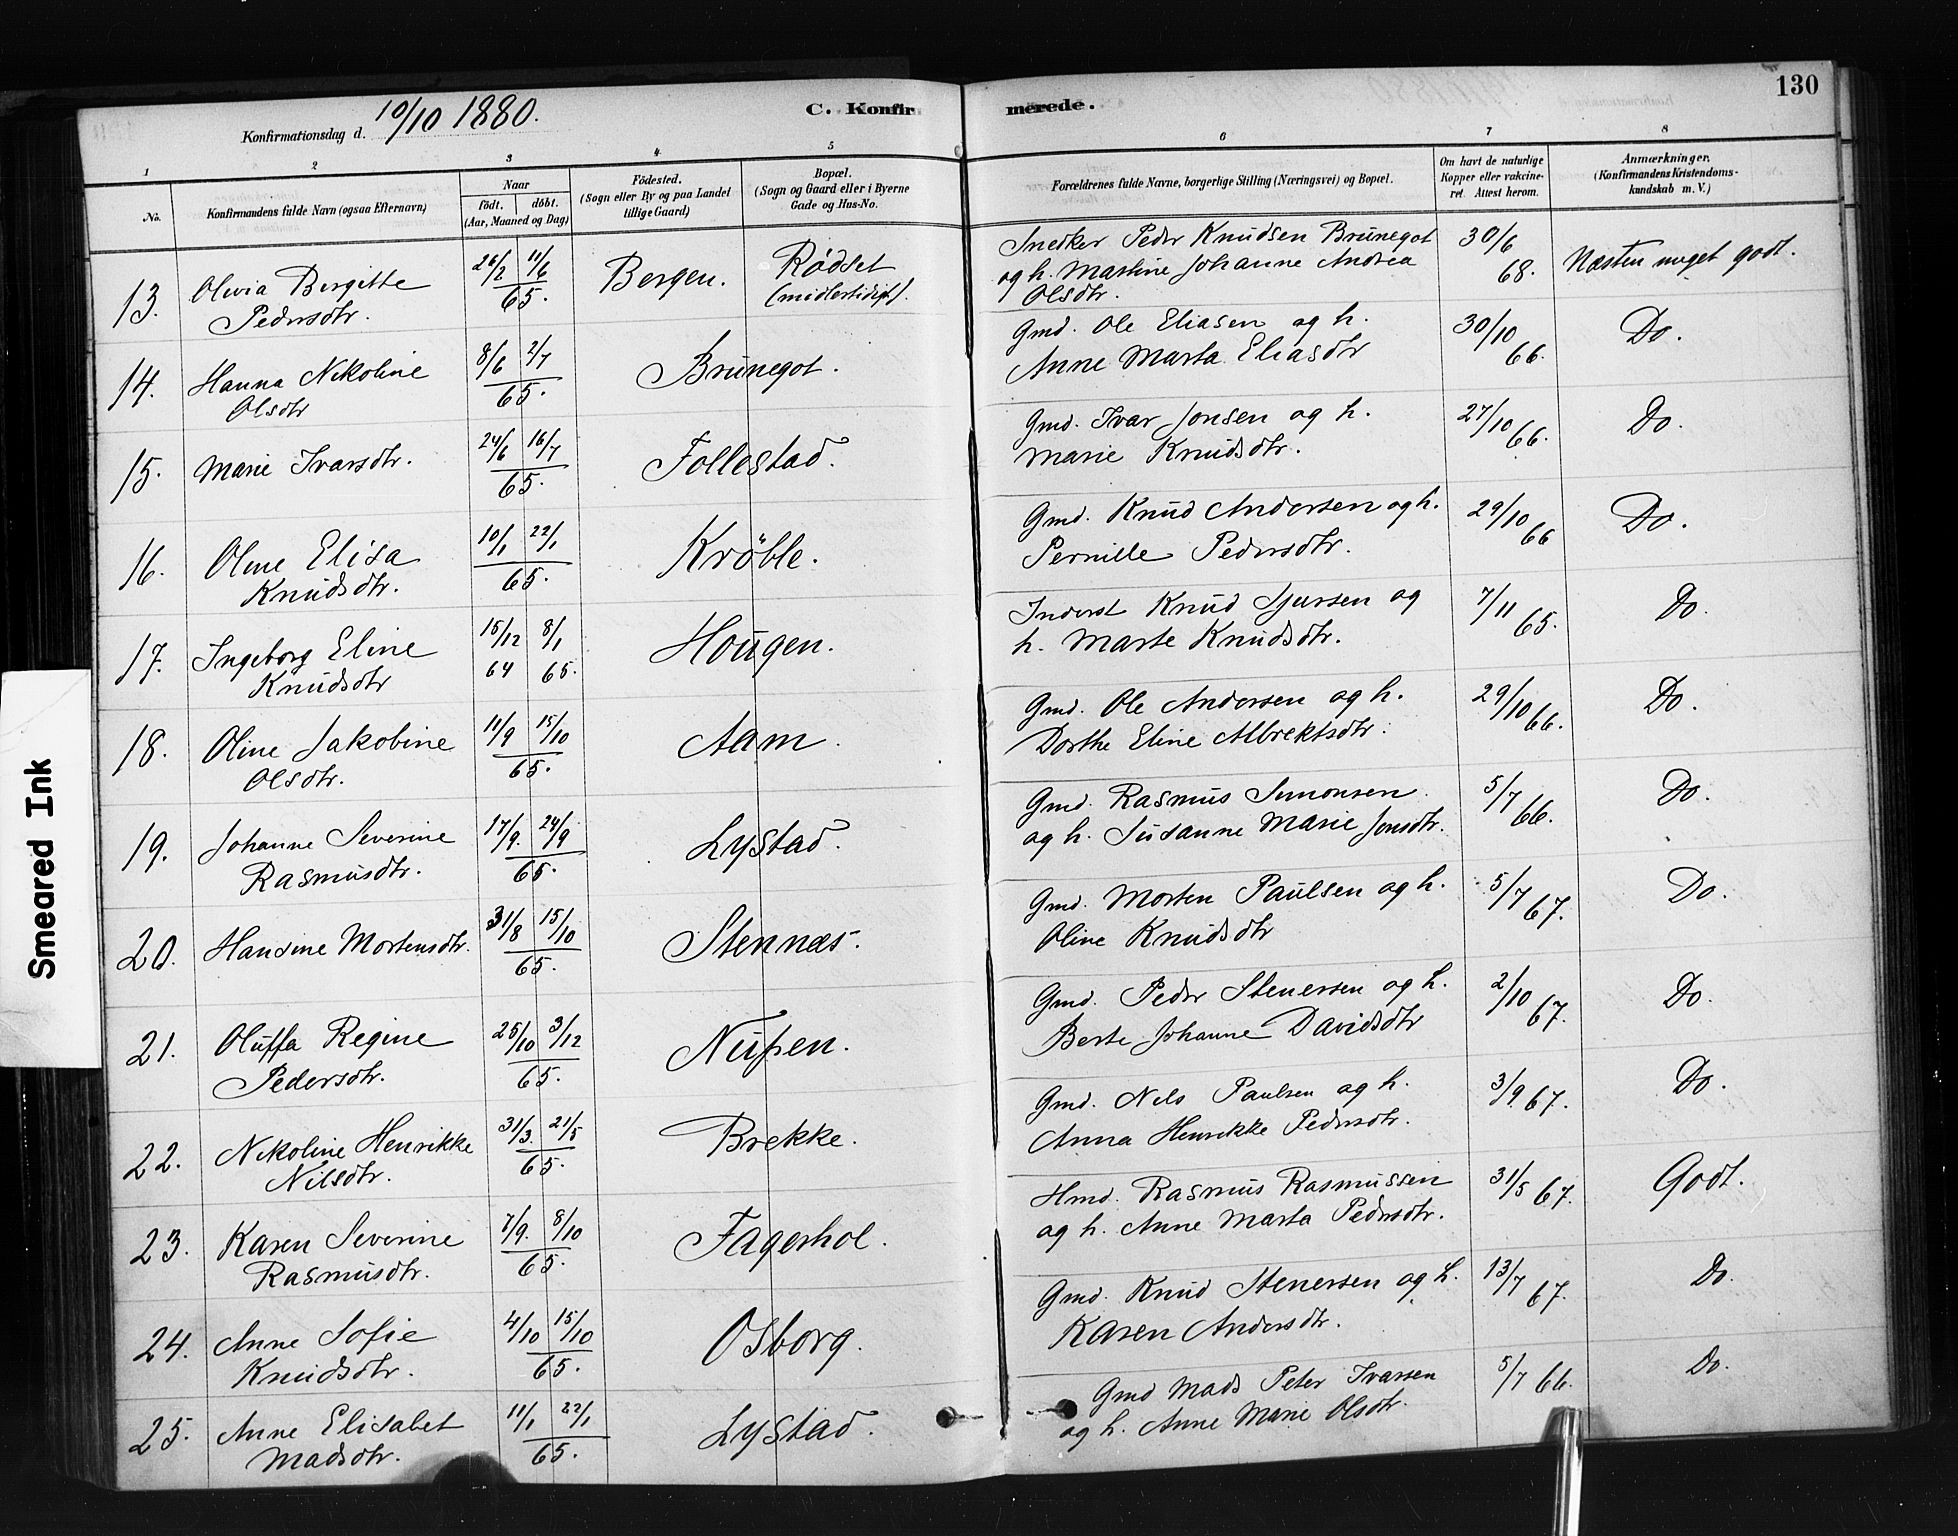 130
Konfirmationsdag d. 10/10 1880.
C. Konfirmerede.
1 2 3 4 5 6 7 8
No.
Konfirmandens fulde Navn (ogsaa Efternavn)
Naar
født. døbt.
(Aar, Maaned og Dag)
Fødested.
(Sogn eller By og paa Landet
tillige Gaard)
Bopæl.
(Sogn og Gaard eller i Byerne
Gade og Hus-No.
Forældrenes fulde Navne, borgerlige Stilling (Næringsvei) og Bopæl.
Om havt de naturlige
Kopper eller vakcine-
ret. Attest herom.
Anmærkninger.
(Konfirmandens Kristendoms-
kundskab m. V.)
13. Olivia Bergitte
Pedersdtr.
26/2 11/6
65.
Bergen.
Rødset
(midlertidigt).
Snedker Peder Knudsen Brunegot
og h. Martine Johanne Andrea
Olsdtr.
30/6
68.
Næsten meget godt.
14. Hanna Nikoline
Olsdtr
8/6 2/7
65.
Brunegot.
Gmd. Ole Eliasen og h.
Anne Marta Eliasdtr
30/10
66.
Do.
15. Marie Ivarsdtr.
24/6 16/7
65.
Follestad.
Gmd. Ivar Jonsen og h.
Marie Knudsdtr.
27/10
66.
Do.
16. Oline Elisa
Knudsdtr.
10/1 22/1
65.
Krøble.
Gmd. Knud Andersen og h.
Pernille Pedersdtr.
29/10
66
Do.
17. Ingeborg Eline
Knudsdtr
15/12 8/1
64 65.
Hougen.
Inderst Knud Sjursen og
h. Marte Knudsdtr.
7/11
65.
Do.
18. Oline Jakobine
Olsdtr.
11/9 15/10
65.
Aam.
Gmd. Ole Andersen og h.
Dorthe Eline Albrektsdtr.
29/10
66.
Do.
19. Johanne Severine
Rasmusdtr.
17/9. 24/9
65.
Lystad.
Gmd. Rasmus Simonsen
og h. Susanne Marie Jonsdtr.
5/7
66.
Do.
20. Hansine Mortensdtr.
31/8 15/10
65.
Stennæs.
Gmd. Morten Paulsen og h.
Oline Knudsdtr
5/7
67.
Do.
21. Oluffa Regine
Pedersdtr.
25/10 3/12
65.
Nupen.
Gmd. Peder Stenersen og h.
Berte Johanne Davidsdtr
2/10
67.
Do.
22. Nikoline Henrikke
Nilsdtr.
31/3. 21/5
65.
Brekke.
Gmd. Nels Paulsen og h.
Anna Henrikke Pedersdtr.
3/9 67.
Do.
23. Karen Severine
Rasmusdtr.
7/9. 8/10
65.
Fagerhol.
Hmd. Rasmus Rasmussen
og h. Anne Marta Pedersdtr.
31/5 67.
Godt.
24. Anne Sofie
Knudsdtr.
4/10 15/10
65.
Osborg.
Gmd. Knud Stenersen og h.
Karen Andersdtr.
13/7 67.
Do.
25. Anne Elisabet
Madsdtr.
11/1 22/1
65.
Lystad.
Gmd Mads Peter Ivarsen
og h. Anne Marie Olsdtr.
5/7 66.
Do.
Smeared Ink